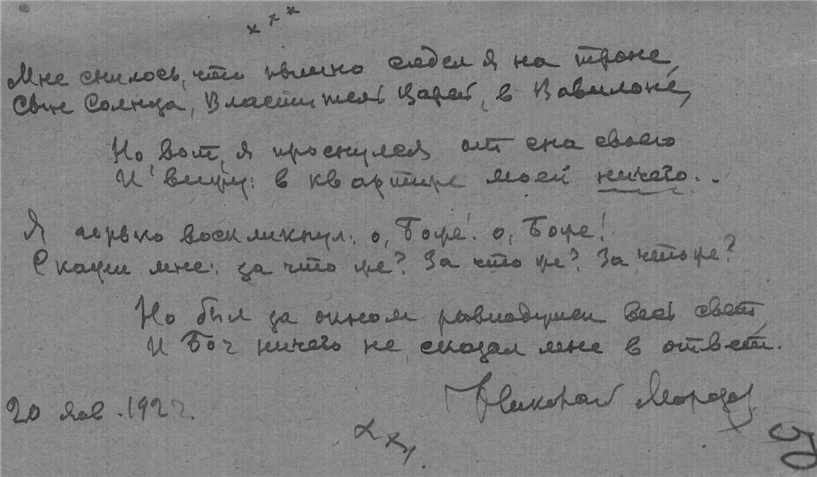 × × ×
Мне снилось, что пышно сидел я на троне,
Сын Солнца, Властитель Царей, в Вавилоне,
Но вот, я проснулся от сна своего
И вижу: в квартире моей ничего..
Я горько воскликнул: о, Боже! о, Боже!
Скажи мне: за что же? За что же? За что же?
Но был за окном равнодушен весь свет,
И Бог ничего не сказал мне в ответ.
20 янв. 192
Николай Морозов
× × ×
50